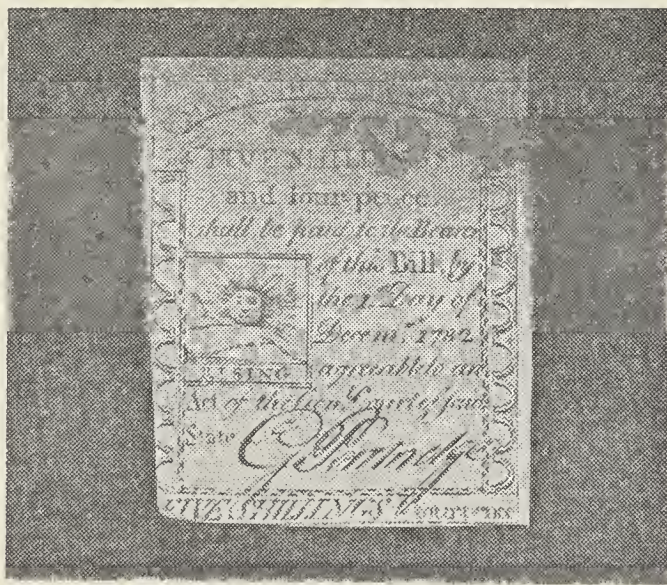 FIVE SHILLINGS
and four-pence
shall be paid to the Bearer
of this Bill by
the 1st Day of
Decemr. 1782
RISING
agreeable to an
Act of the Genl. Court of said
State
FIVE SHILLINGS